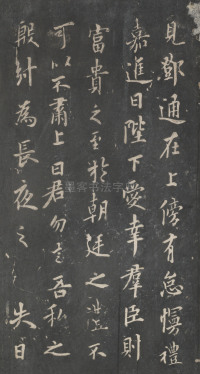 見鄧通在上傍有怠慢禮
嘉進曰陛下愛幸群臣則
富貴之至於朝廷之禮不
可以不肅上曰君勿言吾私之
殷紂為長夜之 失日